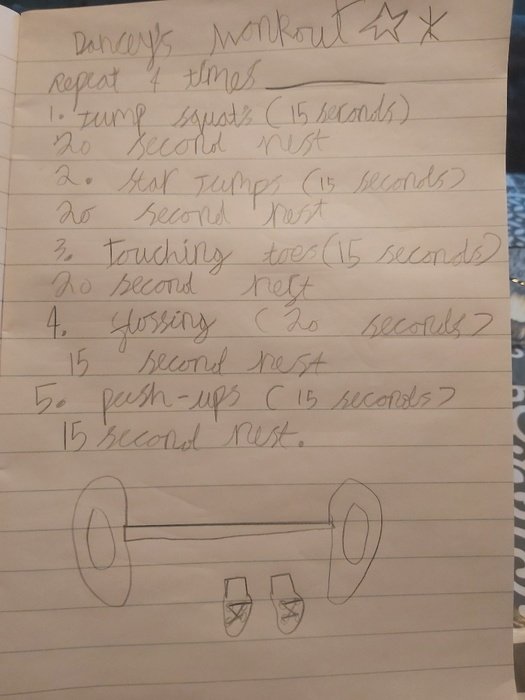 Dancey's Workout
Repeat 4 times
1. Jump squats (15 seconds)
20 second rest
2. star Jumps (15 seconds)
20 second rest
3. Touching toes (15 seconds)
20 second rest
4. flossing (20 seconds)
15 second rest
5. push-ups (15 seconds)
15 second rest.